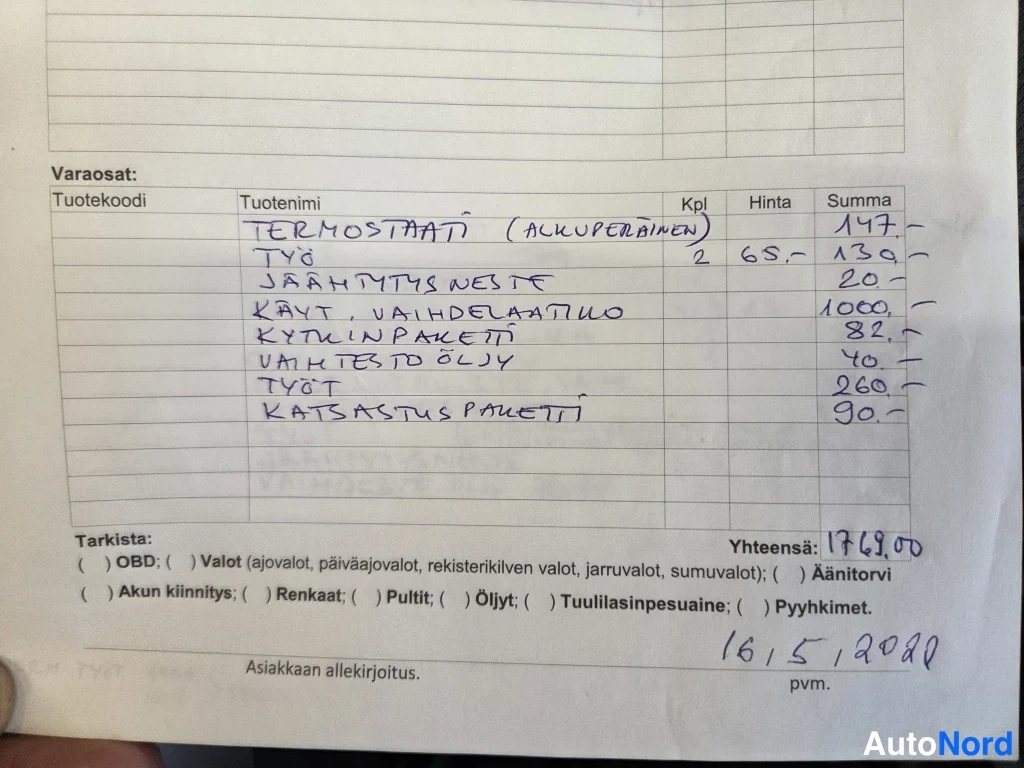 Varaosat:
Tuotekoodi Tuotenimi Kpl Hinta Summa
TERMOSTAATI (ALKUPERÄINEN) 147.-
TYÖ 2 65.- 130.-
JÄÄHTYTYSNESTE 20.-
KÄYT. VAIHDELAATIKKO 1000.-
KYTKINPAKETTI 82.-
VAIHTESTOÖLJY 40.-
TYÖT 260.-
KATSASTUSPAKETTI 90.-
Tarkista: Yhteensä: 1769,00
( ) OBD; ( ) Valot (ajovalot, päiväajovalot, rekisterikilven valot, jarruvalot, sumuvalot); ( ) Äänitorvi
( ) Akun kiinnitys; ( ) Renkaat; ( ) Pultit; ( ) Öljyt; ( ) Tuulilasinpesuaine; ( ) Pyyhkimet.
Asiakkaan allekirjoitus. pvm.
AutoNord